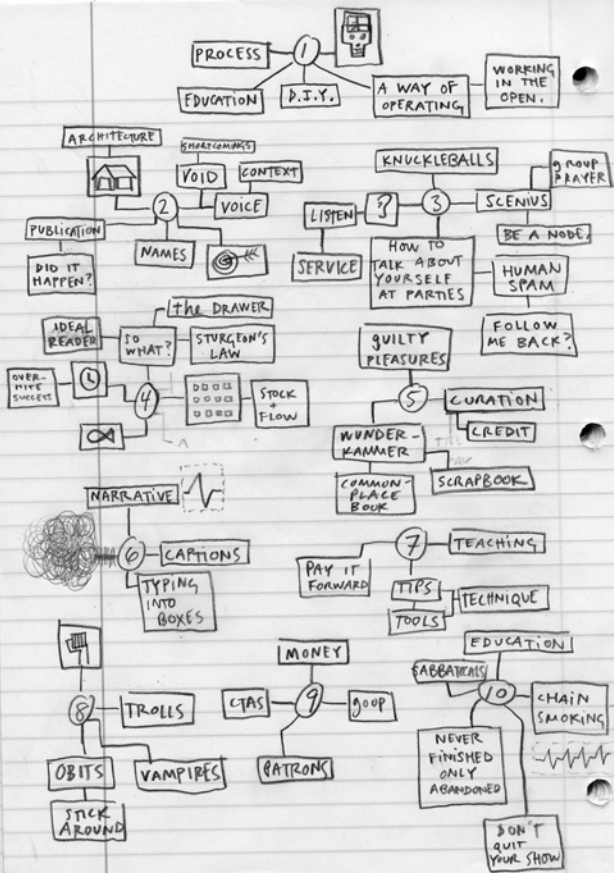 1
PROCESS
EDUCATION
D.I.Y.
A WAY OF
OPERATING
WORKING
IN THE
OPEN.
2
ARCHITECTURE
SHORTCOMINGS
VOID
CONTEXT
VOICE
PUBLICATION
DID IT
HAPPEN?
NAMES
3
KNUCKLEBALLS
GROUP
PRAYER
SCENIUS
BE A NODE.
?
LISTEN
SERVICE
HOW TO
TALK ABOUT
YOURSELF
AT PARTIES
HUMAN
SPAM
FOLLOW
ME BACK?
4
the DRAWER
IDEAL
READER
SO
WHAT?
STURGEON'S
LAW
OVER-
NITE
SUCCESS
STOCK
+
FLOW
5
GUILTY
PLEASURES
CURATION
CREDIT
WUNDER-
KAMMER
SCRAPBOOK
COMMON-
PLACE
BOOK
6
NARRATIVE
CAPTIONS
TYPING
INTO
BOXES
7
TEACHING
PAY IT
FORWARD
TIPS
TECHNIQUE
TOOLS
8
TROLLS
OBITS
VAMPIRES
STICK
AROUND
9
MONEY
CTAS
GOOP
PATRONS
10
EDUCATION
SABBATICALS
CHAIN
SMOKING
NEVER
FINISHED
ONLY
ABANDONED
DON'T
QUIT
YOUR SHOW